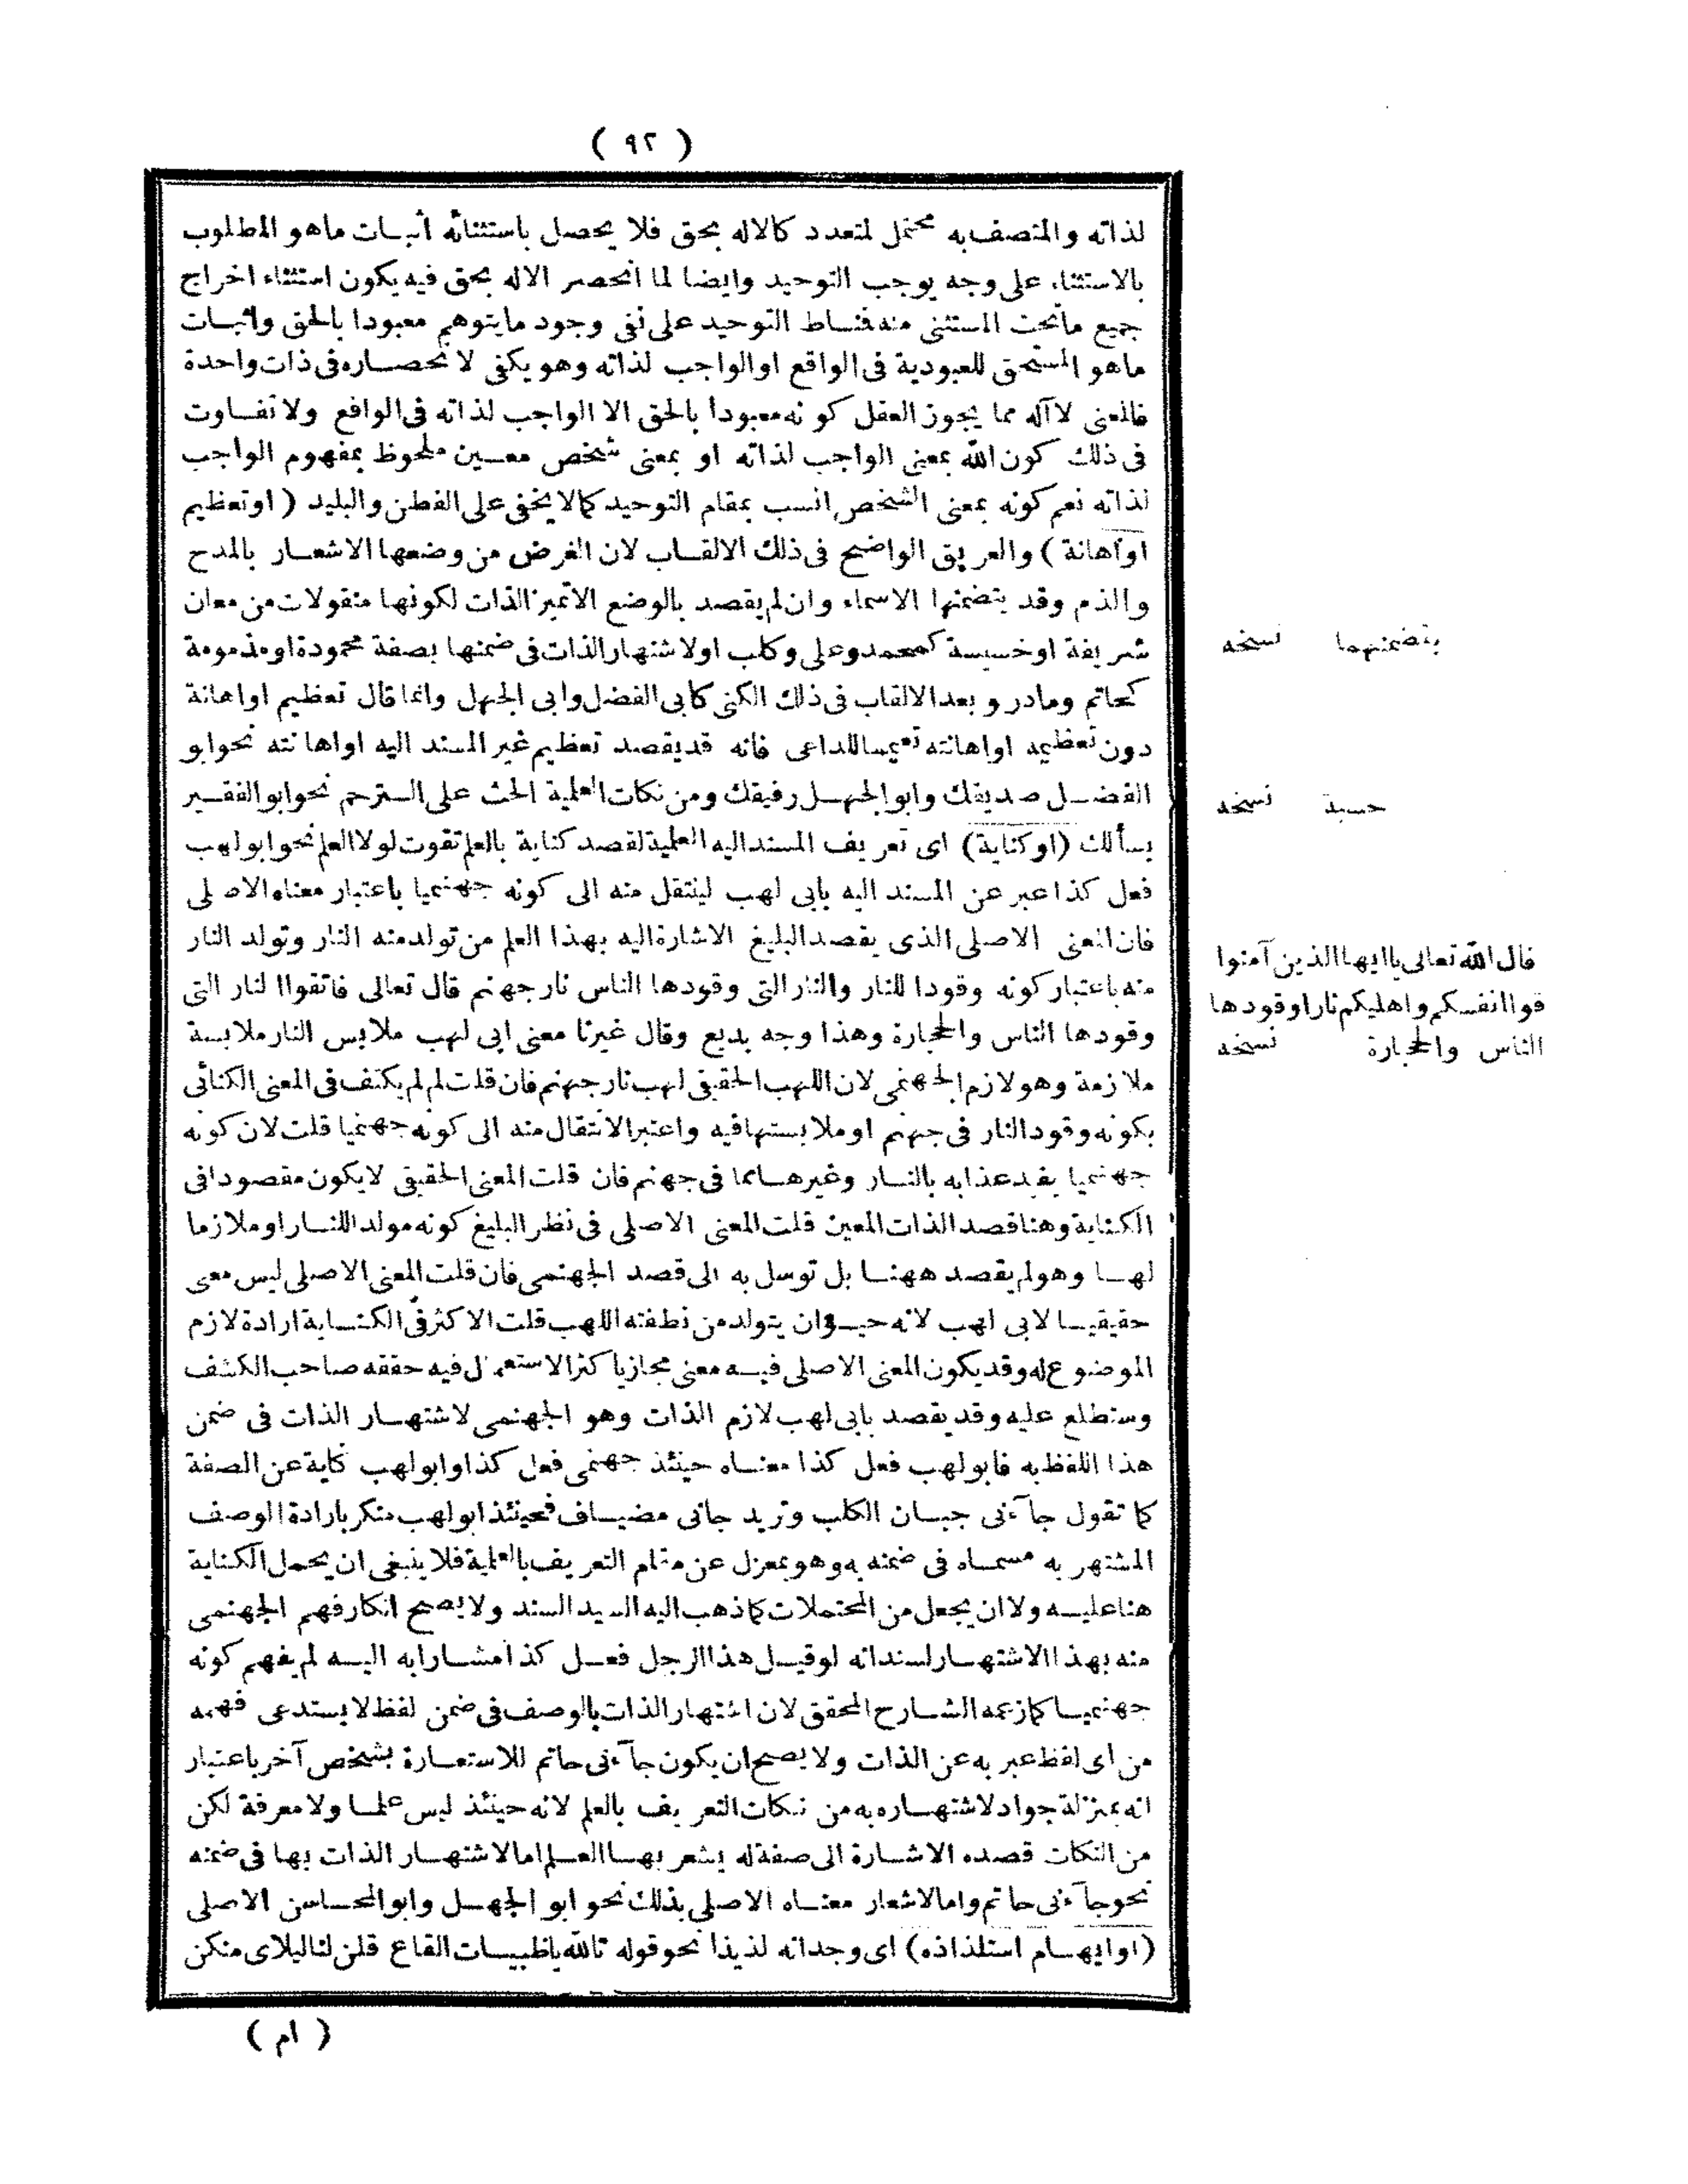 ( ٩٢ )
لذاته والمتصف به محتمل لمتعدد كالاله بحق فلا يحصل باستثنائه أثبات ماهو المطلوب
بالاستثناء على وجه يوجب التوحيد وايضا لما انحصر الاله بحق فيه يكون استثناء اخراج
جميع ماتحت المستثنى منه فمناط التوحيد على نفى وجود مايتوهم معبودا بالحق واثبات
ماهو المستحق للعبودية فى الواقع اوالواجب لذاته وهو يكفى لانحصاره فى ذات واحدة
فالمعنى لاآله مما يجوز العقل كونه معبودا بالحق الا الواجب لذاته فى الواقع ولاتفاوت
فى ذلك كون الله بمعنى الواجب لذاته او بمعنى شخص معين ملحوظ بمفهوم الواجب
لذاته نعم كونه بمعنى الشخص انسب بمقام التوحيد كمالايخفى على الفطن والبليد (اوتعظيم
اواهانة) والعريق الواضح فى ذلك الالقاب لان الغرض من وضعها الاشعار بالمدح
والذم وقد يتضمنها الاسماء وان لم يقصد بالوضع الاتميز الذات لكونها منقولات من معان
شريفة اوخسيسة كمحمد وعلى وكلب اولاشتهار الذات فى ضمنها بصفة محمودة اومذمومة
كحاتم ومادر و بعد الالقاب فى ذلك الكنى كابى الفضل وابى الجهل وانما قال تعظيم اواهانة
دون تعظيمه اواهانته تعميما للداعى فانه قد يقصد تعظيم غير المسند اليه اواهانته نحو ابو
الفضل صديقك وابو الجهل رفيقك ومن نكات العلمية الحث على الترحم نحو ابو الفقير
يسألك (اوكناية) اى تعريف المسند اليه العلمية لقصد كناية بالعلم تفوت لولا العلم نحو ابو لهب
فعل كذا عبر عن المسند اليه بابى لهب لينتقل منه الى كونه جهنميا باعتبار معناه الاصلى
فان المعنى الاصلى الذى يقصد البليغ الاشارة اليه بهذا العلم من تولد منه النار وتولد النار
منه باعتبار كونه وقودا للنار والنار التى وقودها الناس نار جهنم قال تعالى فاتقوا النار التى
وقودها الناس والحجارة وهذا وجه بديع وقال غيرنا معنى ابى لهب ملابس النار ملابسة
ملازمة وهو لازم الجهنمى لان اللهب الحقيقى لهب نار جهنم فان قلت لم لم يكتف فى المعنى الكنائى
بكونه وقود النار فى جهنم اوملابستها فيه واعتبر الانتقال منه الى كونه جهنميا قلت لان كونه
جهنميا يفيد عذابه بالنار وغيرها مما فى جهنم فان قلت المعنى الحقيقى لايكون مقصودا فى
الكناية وهنا قصد الذات المعين قلت المعنى الاصلى فى نظر البليغ كونه مولد اللنار اوملازما
لها وهو لم يقصد ههنا بل توسل به الى قصد الجهنمى فان قلت المعنى الاصلى ليس معنى
حقيقيا لابى لهب لانه حيوان يتولد من نطفته اللهب قلت الاكثر فى الكناية ارادة لازم
الموضوع له وقد يكون المعنى الاصلى فيه معنى مجازيا كثر الاستعمال فيه حققه صاحب الكشف
وستطلع عليه وقد يقصد بابى لهب لازم الذات وهو الجهنمى لاشتهار الذات فى ضمن
هذا اللفظ به فابو لهب فعل كذا معناه حينئذ جهنمى فعل كذا وابو لهب كناية عن الصفة
كما تقول جاءنى جبان الكلب وتريد جانى مضياف فحينئذ ابو لهب منكر بارادة الوصف
المشتهر به مسماه فى ضمنه به وهو بمعزل عن مقام التعريف بالعلمية فلا ينبغى ان يحمل الكناية
هنا عليه ولا ان يجعل من المحتملات كما ذهب اليه السيد السند ولا يصح انكار فهم الجهنمى
منه بهذا الاشتهار لسند انه لو قيل هذا الرجل فعل كذا مشارا به اليه لم يفهم كونه
جهنميا كما زعمه الشارح المحقق لان اشتهار الذات بالوصف فى ضمن لفظ لايستدعى فهمه
من اى لفظ عبر به عن الذات ولا يصح ان يكون جاءنى حاتم للاستعارة بشخص آخر باعتبار
انه بمنزلة جواد لاشتهاره به من نكات التعريف بالعلم لانه حينئذ ليس علما ولا معرفة لكن
من النكات قصده الاشارة الى صفة له يشعر بها العلم اما لاشتهار الذات بها فى ضمنه
نحو جاءنى حاتم واما لاشعار معناه الاصلى بذلك نحو ابو الجهل وابو المحاسن الاصلى
(اوايهام استلذاذه) اى وجدانه لذيذا نحو قوله تالله ياظبيات القاع قلن لنا ليلاى منكن
( ام )
يتضمنهما نسخه
حسبة نسخه
قال الله تعالى ياايها الذين آمنوا
قوا انفسكم واهليكم نارا وقودها
الناس والحجارة نسخه